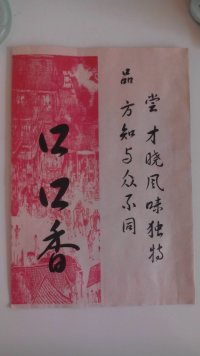 口口香
尝才晓风味独特
品方知与众不同